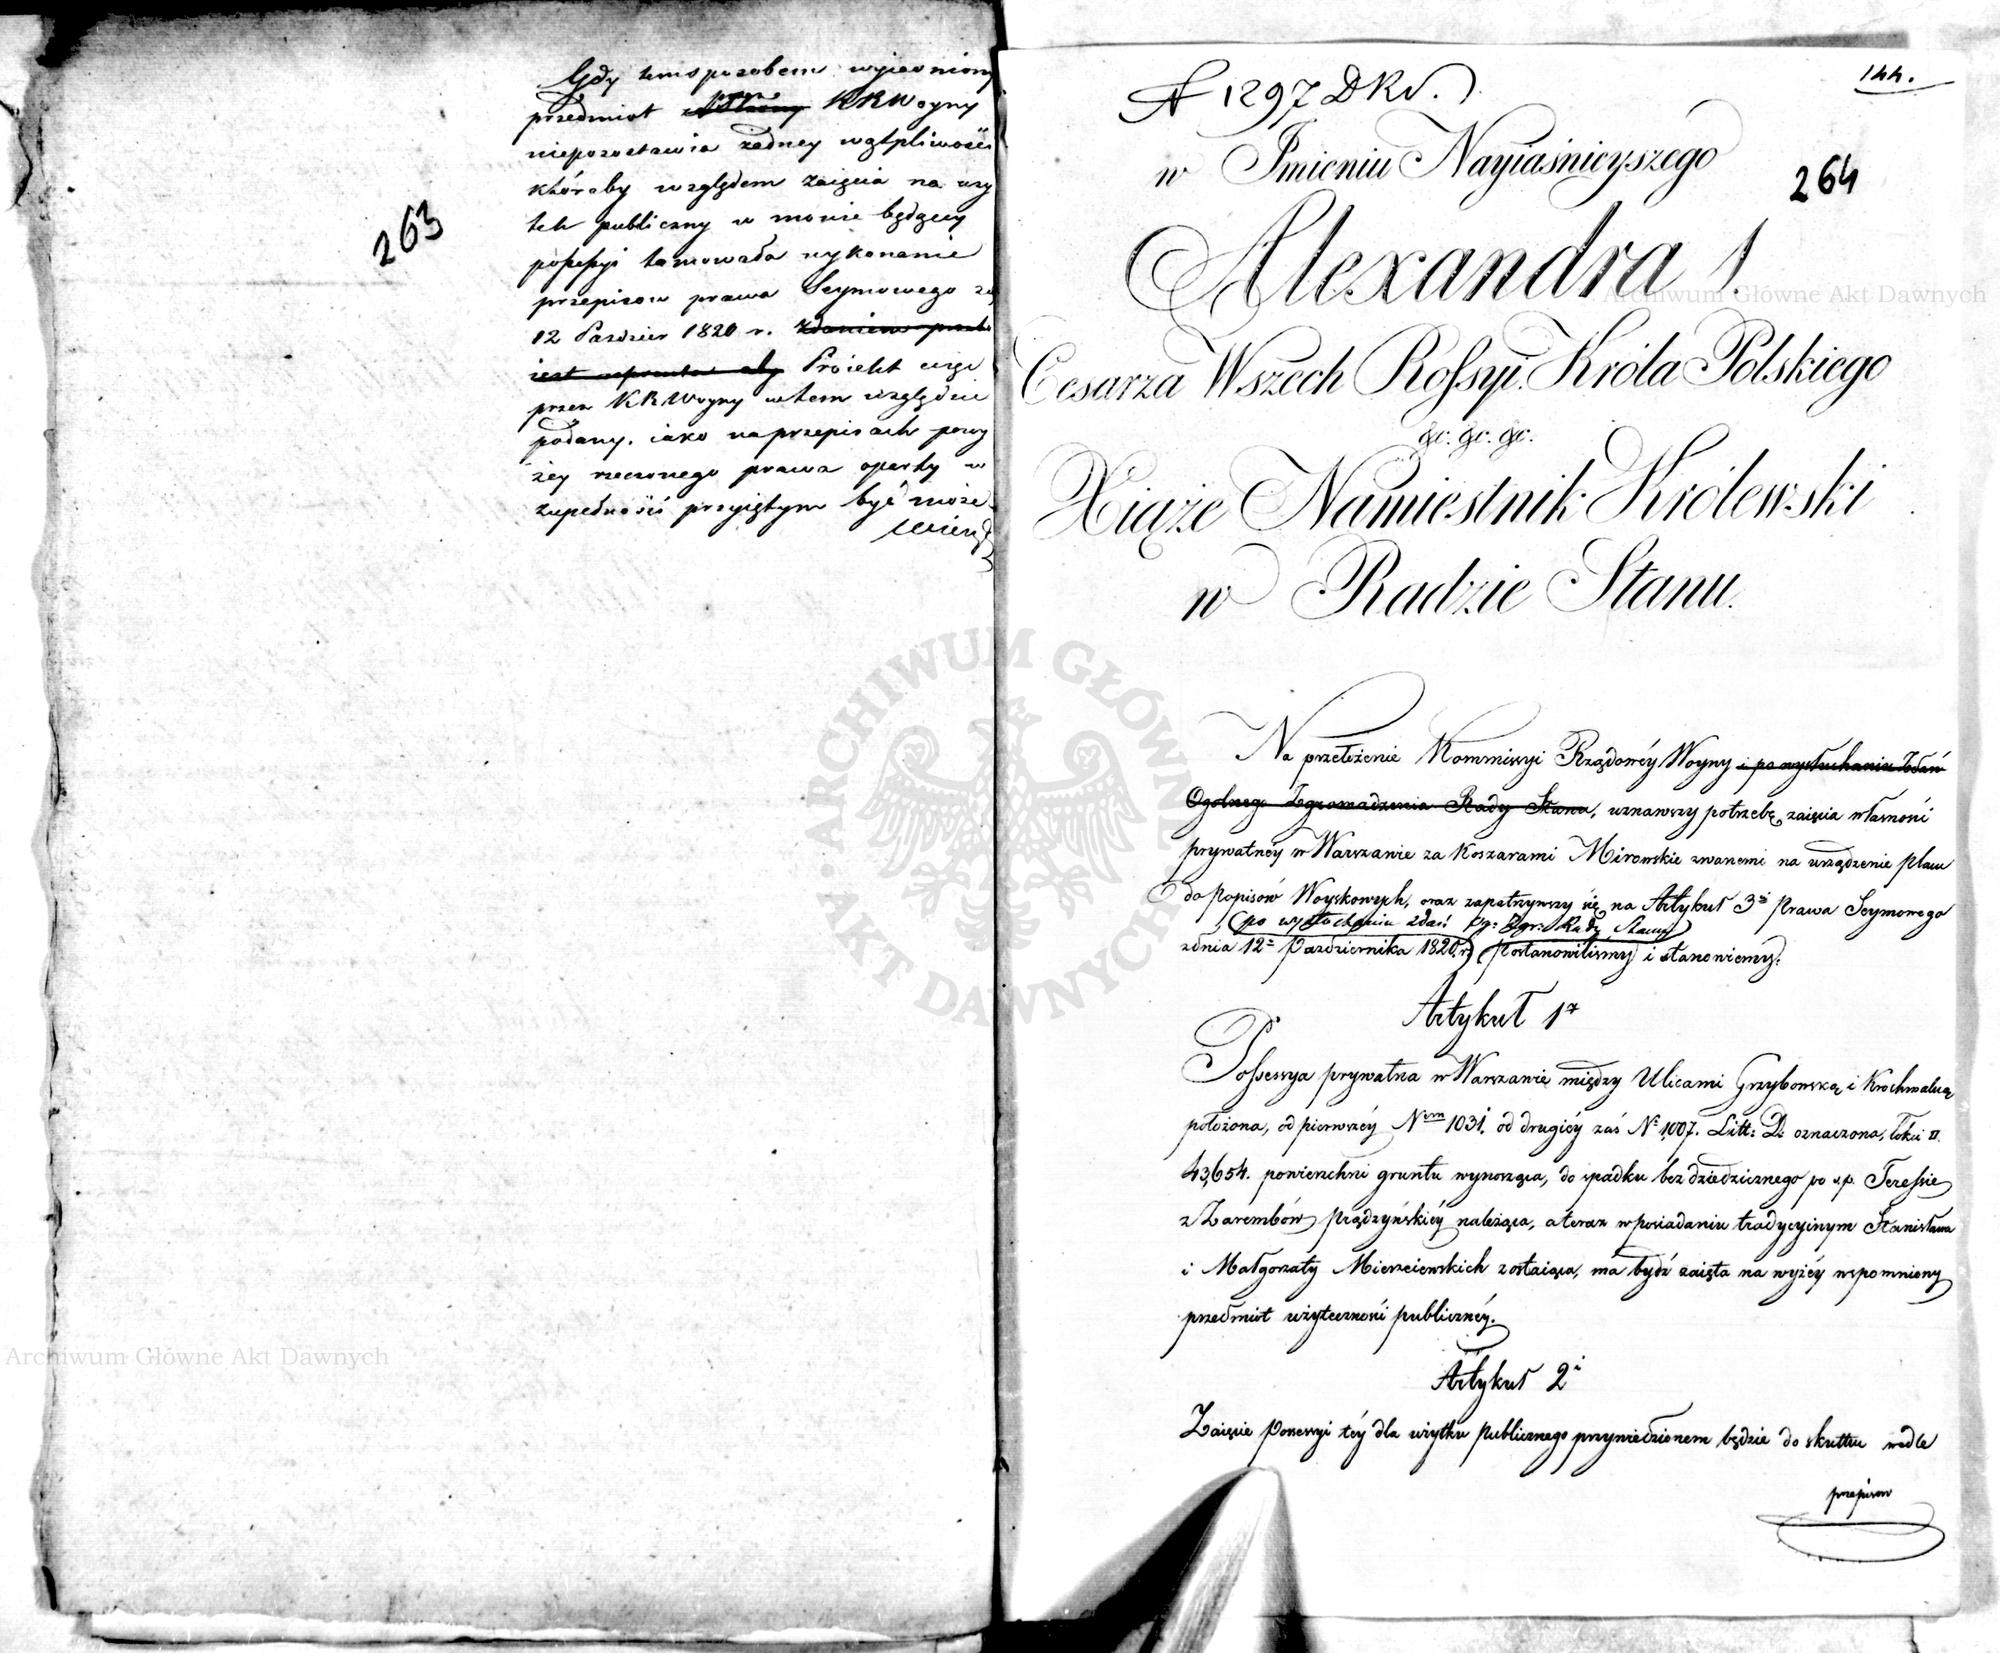 263
Gdy tem sposobem wyjaśniony
przedmiot przez KRWoyny
niepozostawia żadney wątpliwości
któraby względem zaięcia na uży
tek publiczny w mowie będącey
possessyi tamowała wykonanie
przepisow prawa Seymowego z d
12 Paździer 1820 r.
Proiekt
przez KRWoyny w tem względzie
podany, iako na przepisach powy
żey rzeczonego prawa oparty w
zupełności przyiętym być może
144.
N 1297 DKW.
264
w Jmieniu Nayiaśnieyszego
Alexandra I.
Cesarza Wszech Rossyi, Króla Polskiego
&c. &c. &c.
Xiąże Namiestnik Królewski
w Radzie Stanu.
Na przełożenie Kommissyi Rządowéy Woyny i po wysłuchaniu Zdań
Ogolnego Zgromadzenia Rady Stanu, uznawszy potrzebę zaięcia własności
prywatnéy w Warszawie za Koszarami Mirowskie zwanemi na urządzenie placu
do popisów Woyskowych, oraz zapatrzywszy się na Artykuł 3ci Prawa Seymowego
po wysłuchaniu zdań Og: Zgr: Rady Stanu
z dnia 12go Października 1820. r. Postanowiliśmy i stanowiemy:
Artykuł 1y
Possessya prywatna w Warszawie między Ulicami Grzybowską i Krochmalną
położona, od pierwszéy Nem 1031. od drugiéy zaś No 1,007. Litt: D. oznaczona, łokci □
43,654. powierzchni gruntu wynosząca, do spadku bezdziedzicznego po ś.p. Teressie
z Zarembów Prądzyńskiéy należąca, a teraz w posiadaniu tradycyinym Stanisława
i Małgorzaty Mierzeiewskich zostaiąca, ma bydź zaięta na wyżéy wspomniony
przedmiot użyteczności publicznéy.
Artykuł 2i
Zaięcie Possessyi téy dla użytku publicznego przywiedzionem będzie do skutku wedle
przepisow
Archiwum Główne Akt Dawnych
Archiwum Główne Akt Dawnych
ARCHIWUM GŁÓWNE AKT DAWNYCH